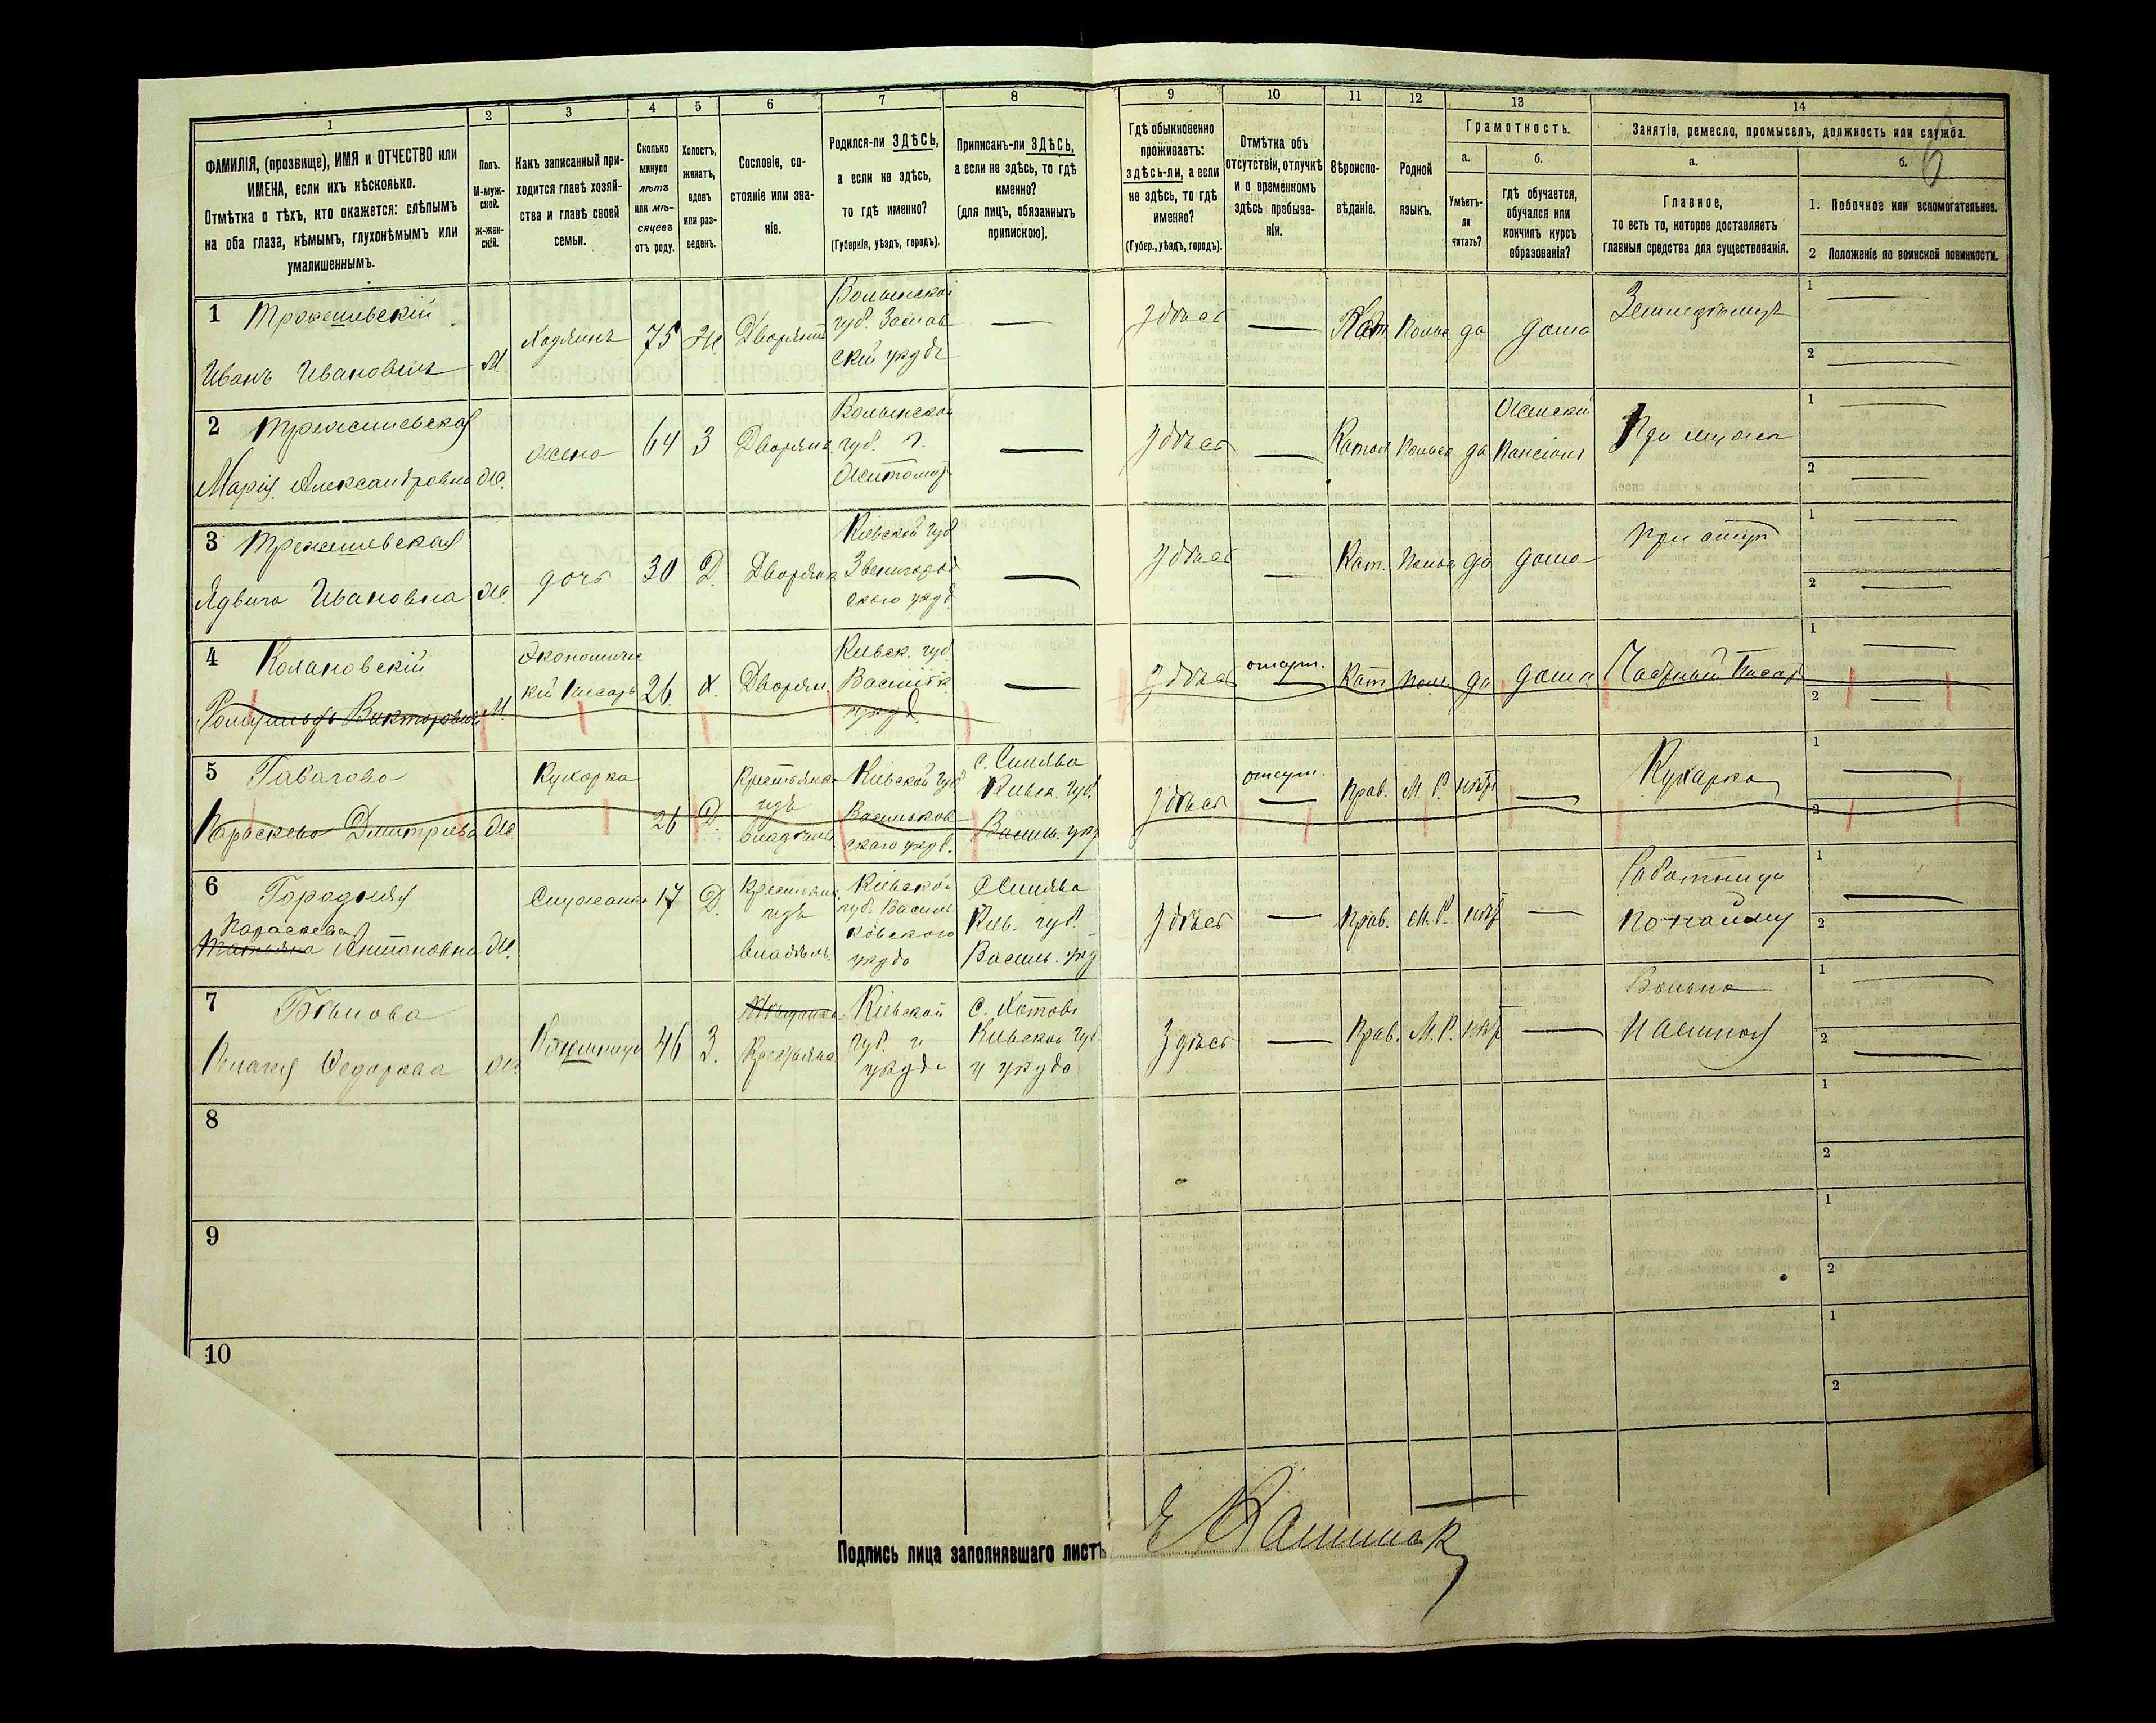 1
2
3
4
5
6
7
8
9
10
11
12
13
14
ФАМИЛІЯ, (прозвище), ИМЯ и ОТЧЕСТВО или
ИМЕНА, если ихъ нѣсколько.
Отмѣтка о тѣхъ, кто окажется: слѣпымъ
на оба глаза, нѣмымъ, глухонѣмымъ или
умалишеннымъ.
Полъ.
М-муж-
ской.
ж-жен-
скій.
Какъ записанный при-
ходится главѣ хозяй-
ства и главѣ своей
семьи.
Сколько
минуло
лѣтъ
или мѣ-
сяцевъ
отъ роду.
Холостъ,
женатъ,
вдовъ
или раз-
веденъ.
Сословіе, со-
стояніе или зва-
ніе.
Родился-ли ЗДѢСЬ,
а если не здѣсь,
то гдѣ именно?
(Губернія, уѣздъ, городъ).
Приписанъ-ли ЗДѢСЬ,
а если не здѣсь, то гдѣ
именно?
(для лицъ, обязанныхъ
припискою).
Гдѣ обыкновенно
проживаетъ:
здѣсь-ли, а если
не здѣсь, то гдѣ
именно?
(Губер., уѣздъ, городъ).
Отмѣтка объ
отсутствіи, отлучкѣ
и о временномъ
здѣсь пребыва-
ніи.
Вѣроиспо-
вѣданіе.
Родной
языкъ.
Грамотность.
а.
б.
Умѣетъ-
ли
читать?
гдѣ обучается,
обучался или
кончилъ курсъ
образованія?
Занятіе, ремесло, промыселъ, должность или служба.
а.
б.
6
Главное,
то есть то, которое доставляетъ
главныя средства для существованія.
1. Побочное или вспомогательное.
2 Положеніе по воинской повинности.
1
Иванъ Ивановичъ
М.
Хозяинъ
75
Ж.
Дворянин
Волынской
губ. Заслав
скій уѣздъ
здѣсь
Кат
Польс
да
дома
Земледѣлецъ
1
2
2
Марія Александровна
Ж.
жена
64
З
Дворянка
Волынской
губ. г.
Житомир
здѣсь
Катол
Польск
да
Женскій
Пансіонъ
При мужѣ
1
2
3
Ядвига Ивановна
Ж.
дочь
30
Д.
Дворянка
Кіевской губ
Звенигород
скаго уѣзд.
здѣсь
Кат.
Польс
да
дома
При отцѣ
1
2
4
Экономичес
кій писарь
М.
26
Х.
Дворян.
Кіевск. губ
уѣзд.
здѣсь
отсут.
Кат
Поль
да
дома
Частный Писарь
1
2
5
Параскева Дмитріева
Ж.
Кухарка
26
Д.
Крестьянка
изъ
Кіевской губ
Васильков
скаго уѣзд.
с. Синява
Кіевск. губ.
Василь. уѣз
здѣсь
отсут.
Прав.
М. Р.
нѣтъ
Кухарка
1
2
6
Городняя
Параскева
Татьяна Антоновна
Ж.
Служанка
17
Д.
изъ
владѣль.
Кіевской
губ. Василь
ковскаго
уѣзда
с Синява
Кіев. губ.
Василь. уѣз
здѣсь
Прав.
М. Р.
нѣт
Работница
по найму
1
2
7
Пелагея Федорова
Ж.
46
З.
Крестьянка
Кіевской
губ. и
уѣзда
Кіевской губ.
и уѣзда
Здѣсь
Прав.
М. Р.
нѣт
1
2
8
1
2
9
1
2
10
1
2
Подпись лица заполнявшаго листъ